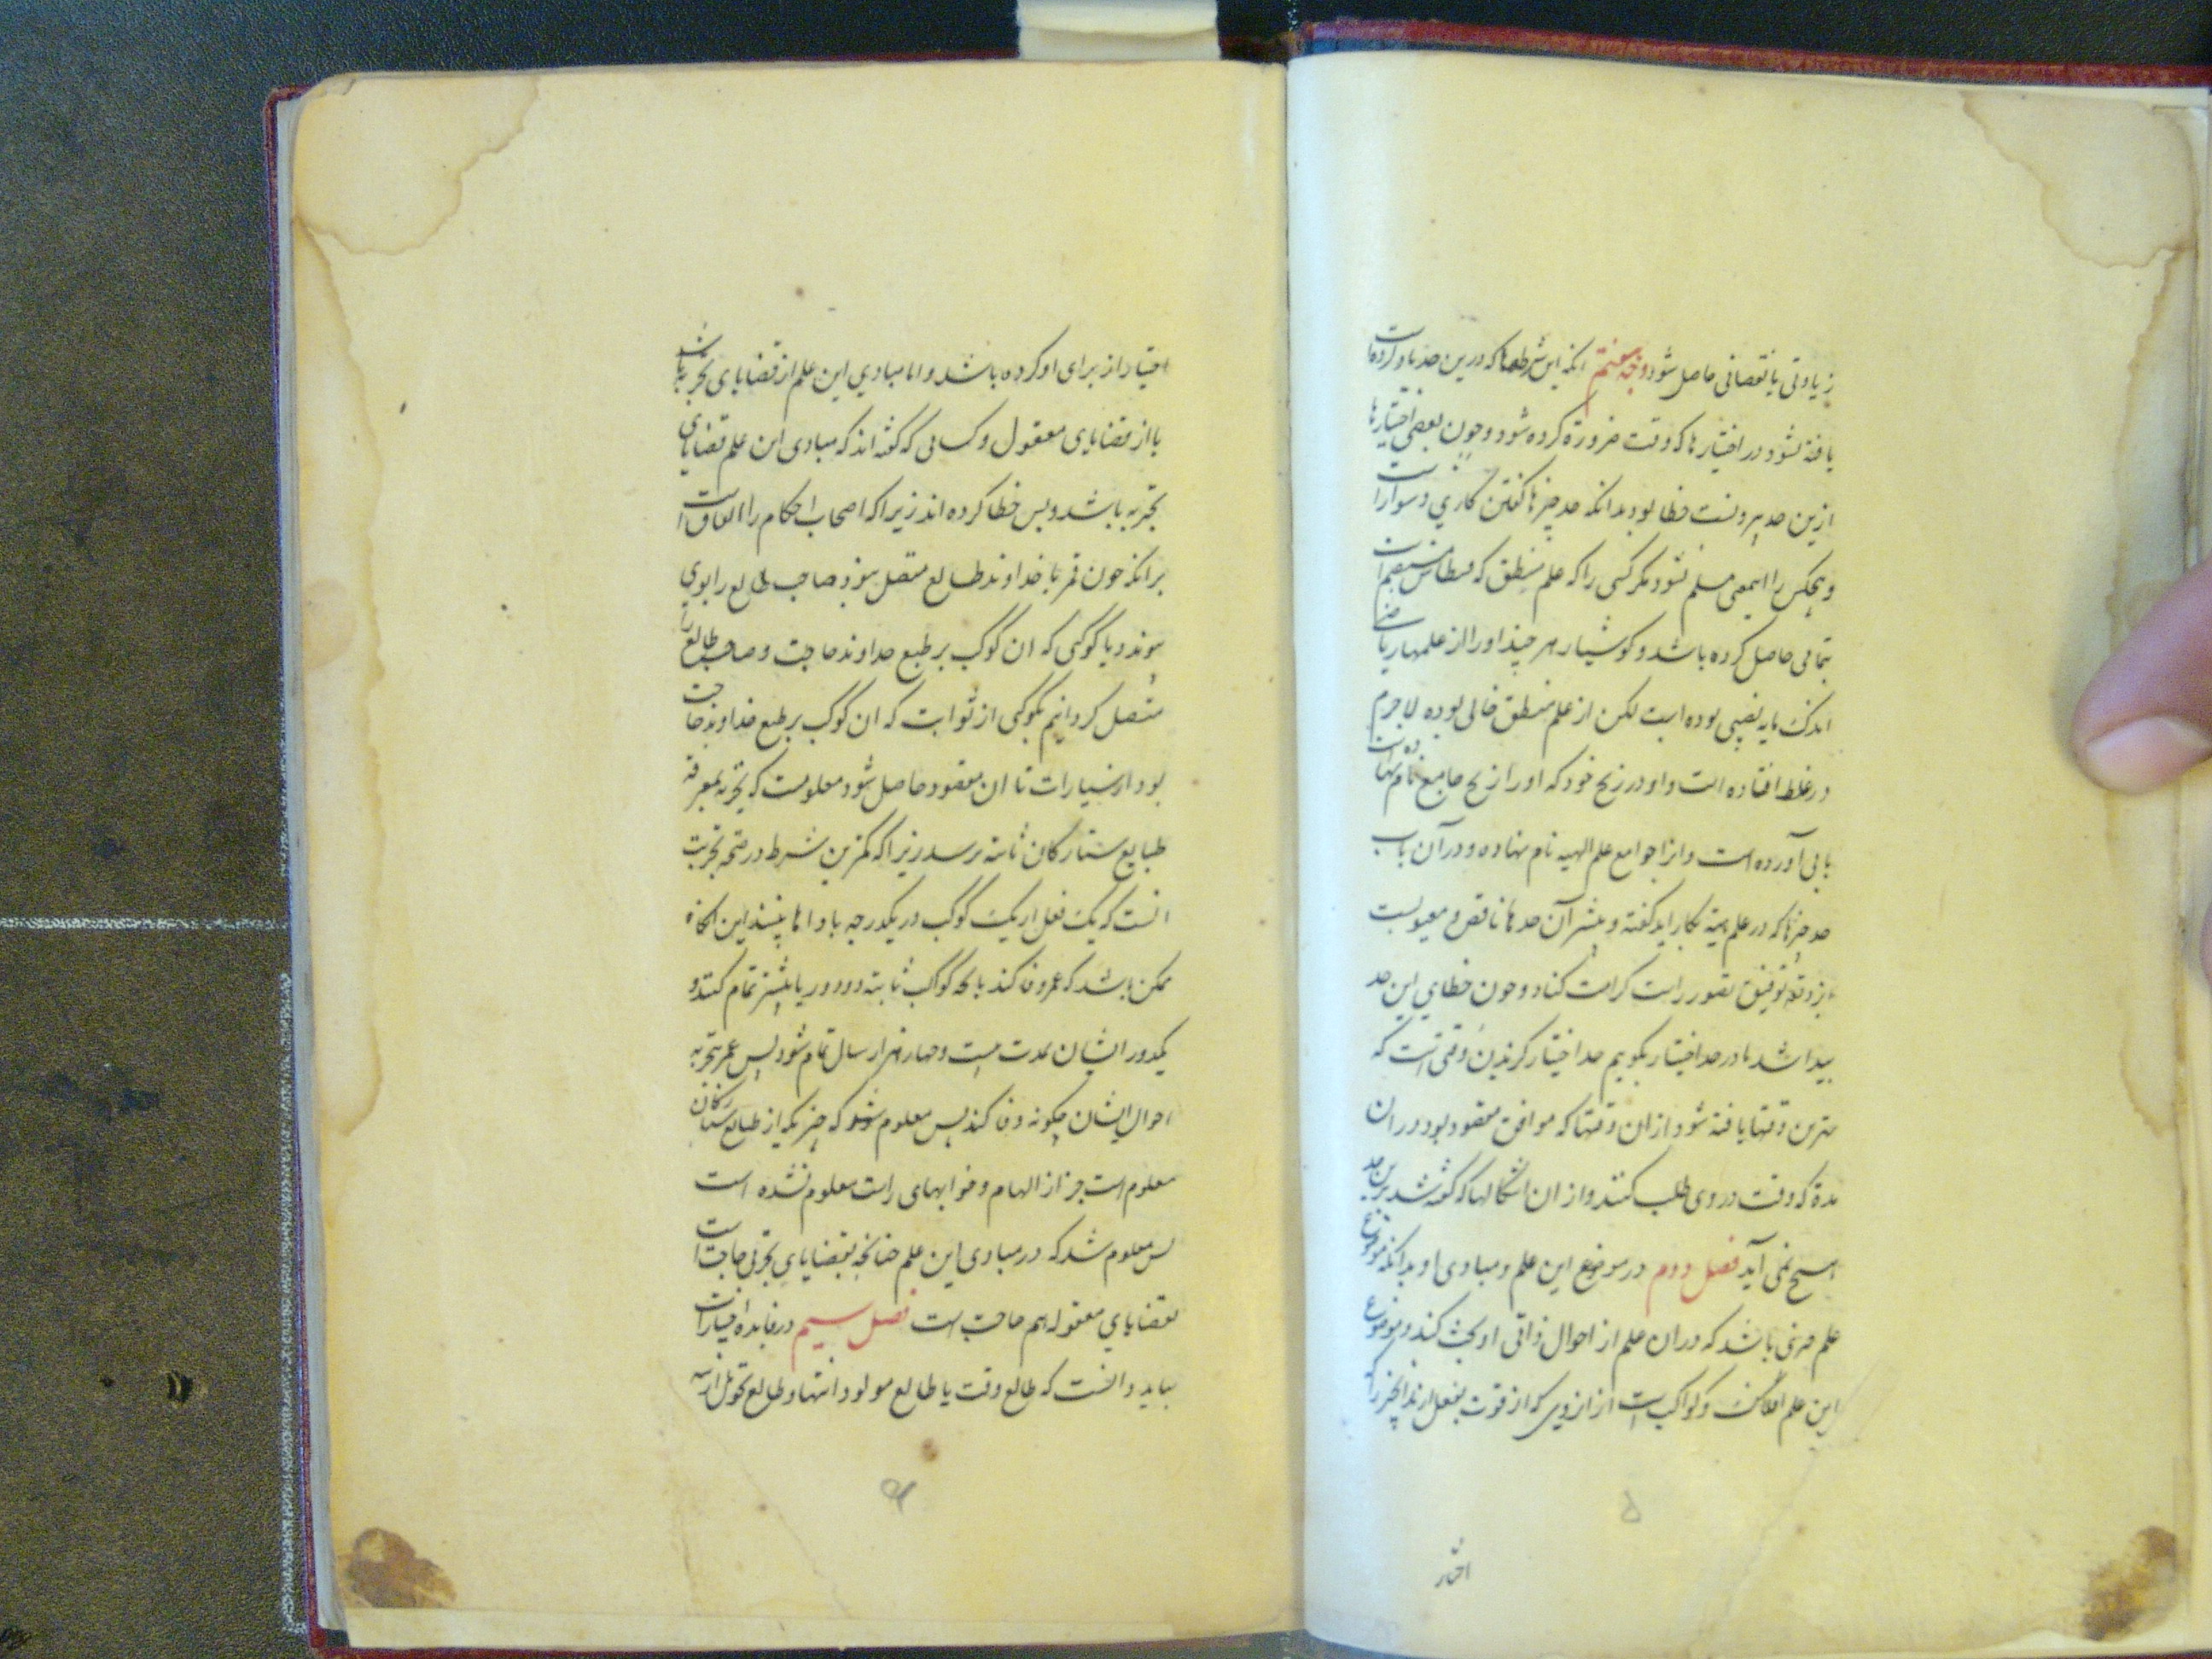 زیادتی یا نقصانی حاصل شود وجه هفتم انکه این شرطها که درین حد یاد کرده است
یافته نشود در اختیارها که وقت ضرورة کرده شود و چون بعضی اختیارها
ازین حد بیرونست خطا بود بدانکه حد چیزها کفتن کاری دشوار است
و هیچکس را اینمعنی مسلم نشود مکر کسی را که علم منطق که قسطاس مستقیم است
بتمامی حاصل کرده باشد و کوشیار هر چند او را از علمهاء ریاضی
اندک مایه نصیبی بوده است لکن از علم منطق خالی بوده لاجرم
در غلط افتاده است و او در زیج خود که او را زیج جامع نام نهاده است
بابی آورده است و انرا جوامع علم الهیه نام نهاده و در آن باب
حد چیزها که در علم هیئة بکار اید کفته و بیشتر آن حدها ناقص و معیوبست
ایزد توفیق تصور راست کرامت کناد و چون خطای این حد
پیدا شد ما در حد اختیار بکویم حد اختیار کزیدن وقتی است که
بهترین وقتها یافته شود از ان وقتها که موافق مقصود بود در ان
مدة که وقت در وی طلب کنند و از ان اشکالها که کفته شد برین حد
هیچ نمی آید فصل دوم در موضوع این علم و مبادی او بدانکه موضوع
علم چیزی باشد که در ان علم از احوال ذاتی او بحث کنند و موضوع
این علم افلاک و کواکب است از ان روی که از قوت بفعل ارند انچیز را که
۵
اختیار
اختیار از برای او کرده باشد و اما مبادی این علم از قضایای تجربه باشد
یا از قضایای معقول و کسانی که کفته اند که مبادی این علم قضایای
تجربه باشد و بس خطا کرده اند زیرا که اصحاب احکام را اتفاق است
بر انکه چون قمر با خداوند طالع متصل شود صاحب طالع را بوی
پیوندد یا کوکبی که ان کوکب بر طبع خداوند حاجت و صاحب طالع را
متصل کردانیم بکوکبی از ثوابت که ان کوکب بر طبع خداوند حاجت
بود از سیارات تا ان مقصود حاصل شود معلومست که تجربه بمعرفة
طبایع ستارکان ثابته نرسد زیرا که کمترین شرط در صحه تجربت
انست که یک فعل از یک کوکب در یکدرجه بارها بینند این انکاه
ممکن باشد که عمر وفا کند بانکه کواکب ثابته دو دور یا بیشتر تمام کنند و
یکدور ایشان بمدت بیست و چهار هزار سال تمام شود پس عمر بتجربه
احوال ایشان چکونه وفا کند پس معلوم شد که چیزیکه از طبایع ستارکان
معلوم است جز از الهام و خوابهای راست معلوم نشده است
پس معلوم شد که در مبادی این علم چنانچه بقضایای تجربی حاجت است
بقضایای معقوله هم حاجت است فصل سیم در فایده اختیارات
بباید دانست که طالع وقت یا طالع مولود انتها و طالع تحویل